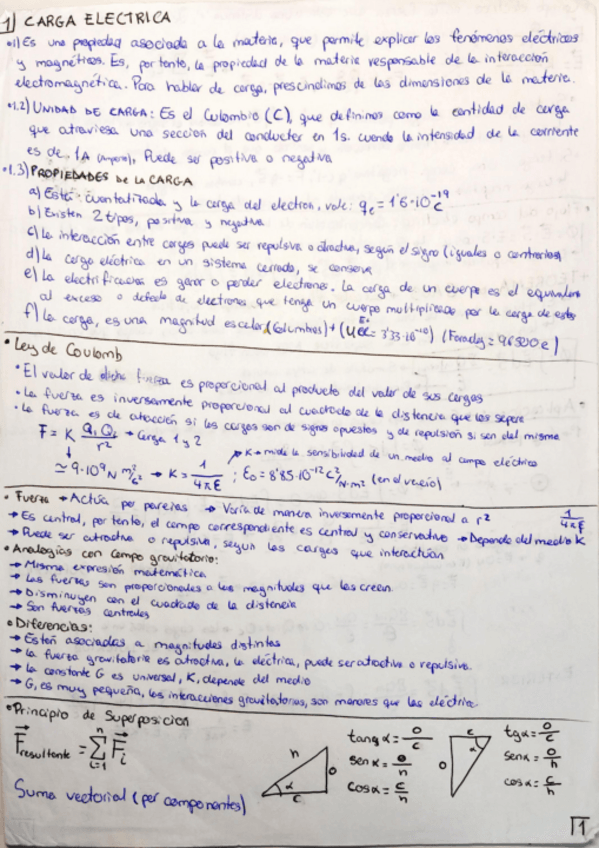 1) CARGA ELECTRICA
• 1.1) Es una propiedad asociada a la materia, que permite explicar los fenómenos eléctricos
y magnéticos. Es, por tanto, la propiedad de la materia responsable de la interacción
electromagnética. Para hablar de carga, prescindimos de las dimensiones de la materia.
• 1.2) UNIDAD DE CARGA: Es el Culombio (C), que definimos como la cantidad de carga
que atraviesa una sección del conductor en 1s. cuando la intensidad de la corriente
es de 1A (Amperio). Puede ser positiva o negativa
• 1.3) PROPIEDADES DE LA CARGA
a) Está cuantatizada y la carga del electron, vale: qe = 1'6·10⁻¹⁹ C
b) Existen 2 tipos, positiva y negativa
c) La interacción entre cargas puede ser repulsiva o atractiva, según el signo (iguales o contrarios)
d) La carga eléctrica en un sistema cerrado, se conserva
e) La electrificación es ganar o perder electrones. La carga de un cuerpo es el equivalente
al exceso o defecto de electrones que tenga un cuerpo multiplicado por la carga de estos
f) La carga, es una magnitud escalar (Columbios) + (UEE = 3'33·10⁻¹⁰) (Faraday = 96500 e)
• Ley de Coulomb
• El valor de dicha fuerza es proporcional al producto del valor de sus cargas
• La fuerza es inversamente proporcional al cuadrado de la distancia que los separe
• La fuerza es de atracción si las cargas son de signos opuestos y de repulsión si son del mismo
F = K Q₁ Q₂ / r² → Carga 1 y 2
K → mide la sensibilidad de un medio al campo eléctrico
≃ 9·10⁹ N m²/C² → K = 1/4πε ; ε₀ = 8'85·10⁻¹² C²/N·m² (en el vacío)
• Fuerza → Actúa por parejas → Varía de manera inversamente proporcional a r² 1/4πε
→ Es central, por tanto, el campo correspondiente es central y conservativo → Depende del medio K
→ Puede ser atractiva o repulsiva, según las cargas que interactúan
• Analogías con campo gravitatorio:
→ Misma expresión matemática
→ Las fuerzas son proporcionales a las magnitudes que las crean
→ Disminuyen con el cuadrado de la distancia
→ Son fuerzas centrales
• Diferencias:
→ Están asociadas a magnitudes distintas
→ La fuerza gravitatoria es atractiva, la eléctrica, puede ser atractiva o repulsiva.
→ La constante G es universal, K, depende del medio
→ G, es muy pequeña, las interacciones gravitatorias, son menores que las eléctrica
• Principio de Superposicion
F resultante = Σ Fi n i=1
h o c α
tang α = o/c
sen α = o/h
cos α = c/h
c o α
tg α = o/c
sen α = o/h
cos α = c/h
Suma vectorial (por componentes)
1